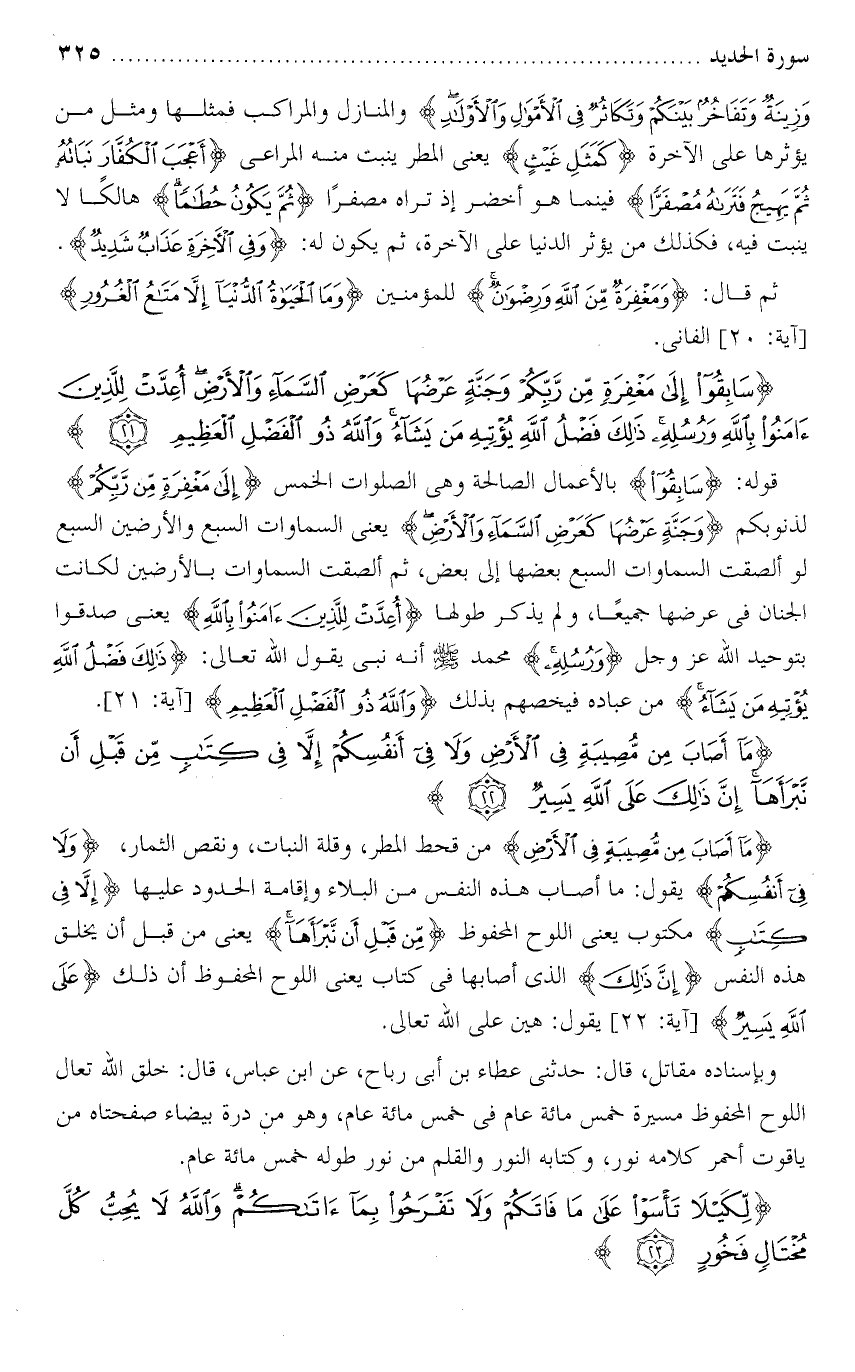 سورة الحديد ........................................................................ ٣٢٥
وَزِينَةٌ وَتَفَاخُرٌ بَيْنَكُمْ وَتَكَاثُرٌ فِي الْأَمْوَالِ وَالْأَوْلَادِ﴾ والمنازل والمراكب فمثلها ومثل من
يؤثرها على الآخرة ﴿كَمَثَلِ غَيْثٍ﴾ يعنى المطر ينبت منه المراعى ﴿أَعْجَبَ الْكُفَّارَ نَبَاتُهُ
ثُمَّ يَهِيجُ فَتَرَاهُ مُصْفَرًّا﴾ فينما هو أخضر إذ تراه مصفرًا ﴿ثُمَّ يَكُونُ حُطَامًا﴾ هالكًا لا
ينبت فيه، فكذلك من يؤثر الدنيا على الآخرة، ثم يكون له: ﴿وَفِي الْآخِرَةِ عَذَابٌ شَدِيدٌ﴾.
ثم قال: ﴿وَمَغْفِرَةٌ مِّنَ اللَّهِ وَرِضْوَانٌ﴾ للمؤمنين ﴿وَمَا الْحَيَاةُ الدُّنْيَا إِلَّا مَتَاعُ الْغُرُورِ﴾
[آية: ٢٠] الفانى.
﴿سَابِقُوا إِلَى مَغْفِرَةٍ مِّن رَّبِّكُمْ وَجَنَّةٍ عَرْضُهَا كَعَرْضِ السَّمَاءِ وَالْأَرْضِ أُعِدَّتْ لِلَّذِينَ
ءَامَنُوا بِاللَّهِ وَرُسُلِهِ ذَلِكَ فَضْلُ اللَّهِ يُؤْتِيهِ مَن يَشَاءُ وَاللَّهُ ذُو الْفَضْلِ الْعَظِيمِ ٢١ ﴾
قوله: ﴿سَابِقُوا﴾ بالأعمال الصالحة وهى الصلوات الخمس ﴿إِلَى مَغْفِرَةٍ مِّن رَّبِّكُمْ﴾
لذنوبكم ﴿وَجَنَّةٍ عَرْضُهَا كَعَرْضِ السَّمَاءِ وَالْأَرْضِ﴾ يعنى السماوات السبع والأرضين السبع
لو ألصقت السماوات السبع بعضها إلى بعض، ثم ألصقت السماوات بالأرضين لكانت
الجنان فى عرضها جميعًا، ولم يذكر طولها ﴿أُعِدَّتْ لِلَّذِينَ ءَامَنُوا بِاللَّهِ﴾ يعنى صدقوا
بتوحيد الله عز وجل ﴿وَرُسُلِهِ﴾ محمد ﷺ أنه نبى يقول الله تعالى: ﴿ذَلِكَ فَضْلُ اللَّهِ
يُؤْتِيهِ مَن يَشَاءُ﴾ من عباده فيخصهم بذلك ﴿وَاللَّهُ ذُو الْفَضْلِ الْعَظِيمِ﴾ [آية: ٢١].
﴿مَا أَصَابَ مِن مُّصِيبَةٍ فِي الْأَرْضِ وَلَا فِي أَنفُسِكُمْ إِلَّا فِي كِتَابٍ مِّن قَبْلِ أَن
نَّبْرَأَهَا إِنَّ ذَلِكَ عَلَى اللَّهِ يَسِيرٌ ٢٢ ﴾
﴿مَا أَصَابَ مِن مُّصِيبَةٍ فِي الْأَرْضِ﴾ من قحط المطر، وقلة النبات، ونقص الثمار، ﴿وَلَا
فِي أَنفُسِكُمْ﴾ يقول: ما أصاب هذه النفس من البلاء وإقامة الحدود عليها ﴿إِلَّا فِي
كِتَابٍ﴾ مكتوب يعنى اللوح المحفوظ ﴿مِّن قَبْلِ أَن نَّبْرَأَهَا﴾ يعنى من قبل أن يخلق
هذه النفس ﴿إِنَّ ذَلِكَ﴾ الذى أصابها فى كتاب يعنى اللوح المحفوظ أن ذلك ﴿عَلَى
اللَّهِ يَسِيرٌ﴾ [آية: ٢٢] يقول: هين على الله تعالى.
وبإسناده مقاتل، قال: حدثنى عطاء بن أبى رباح، عن ابن عباس، قال: خلق الله تعال
اللوح المحفوظ مسيرة خمس مائة عام فى خمس مائة عام، وهو من درة بيضاء صفحتاه من
ياقوت أحمر كلامه نور، وكتابه النور والقلم من نور طوله خمس مائة عام.
﴿لِّكَيْلَا تَأْسَوْا عَلَى مَا فَاتَكُمْ وَلَا تَفْرَحُوا بِمَا ءَاتَاكُمْ وَاللَّهُ لَا يُحِبُّ كُلَّ
مُخْتَالٍ فَخُورٍ ٢٣ ﴾